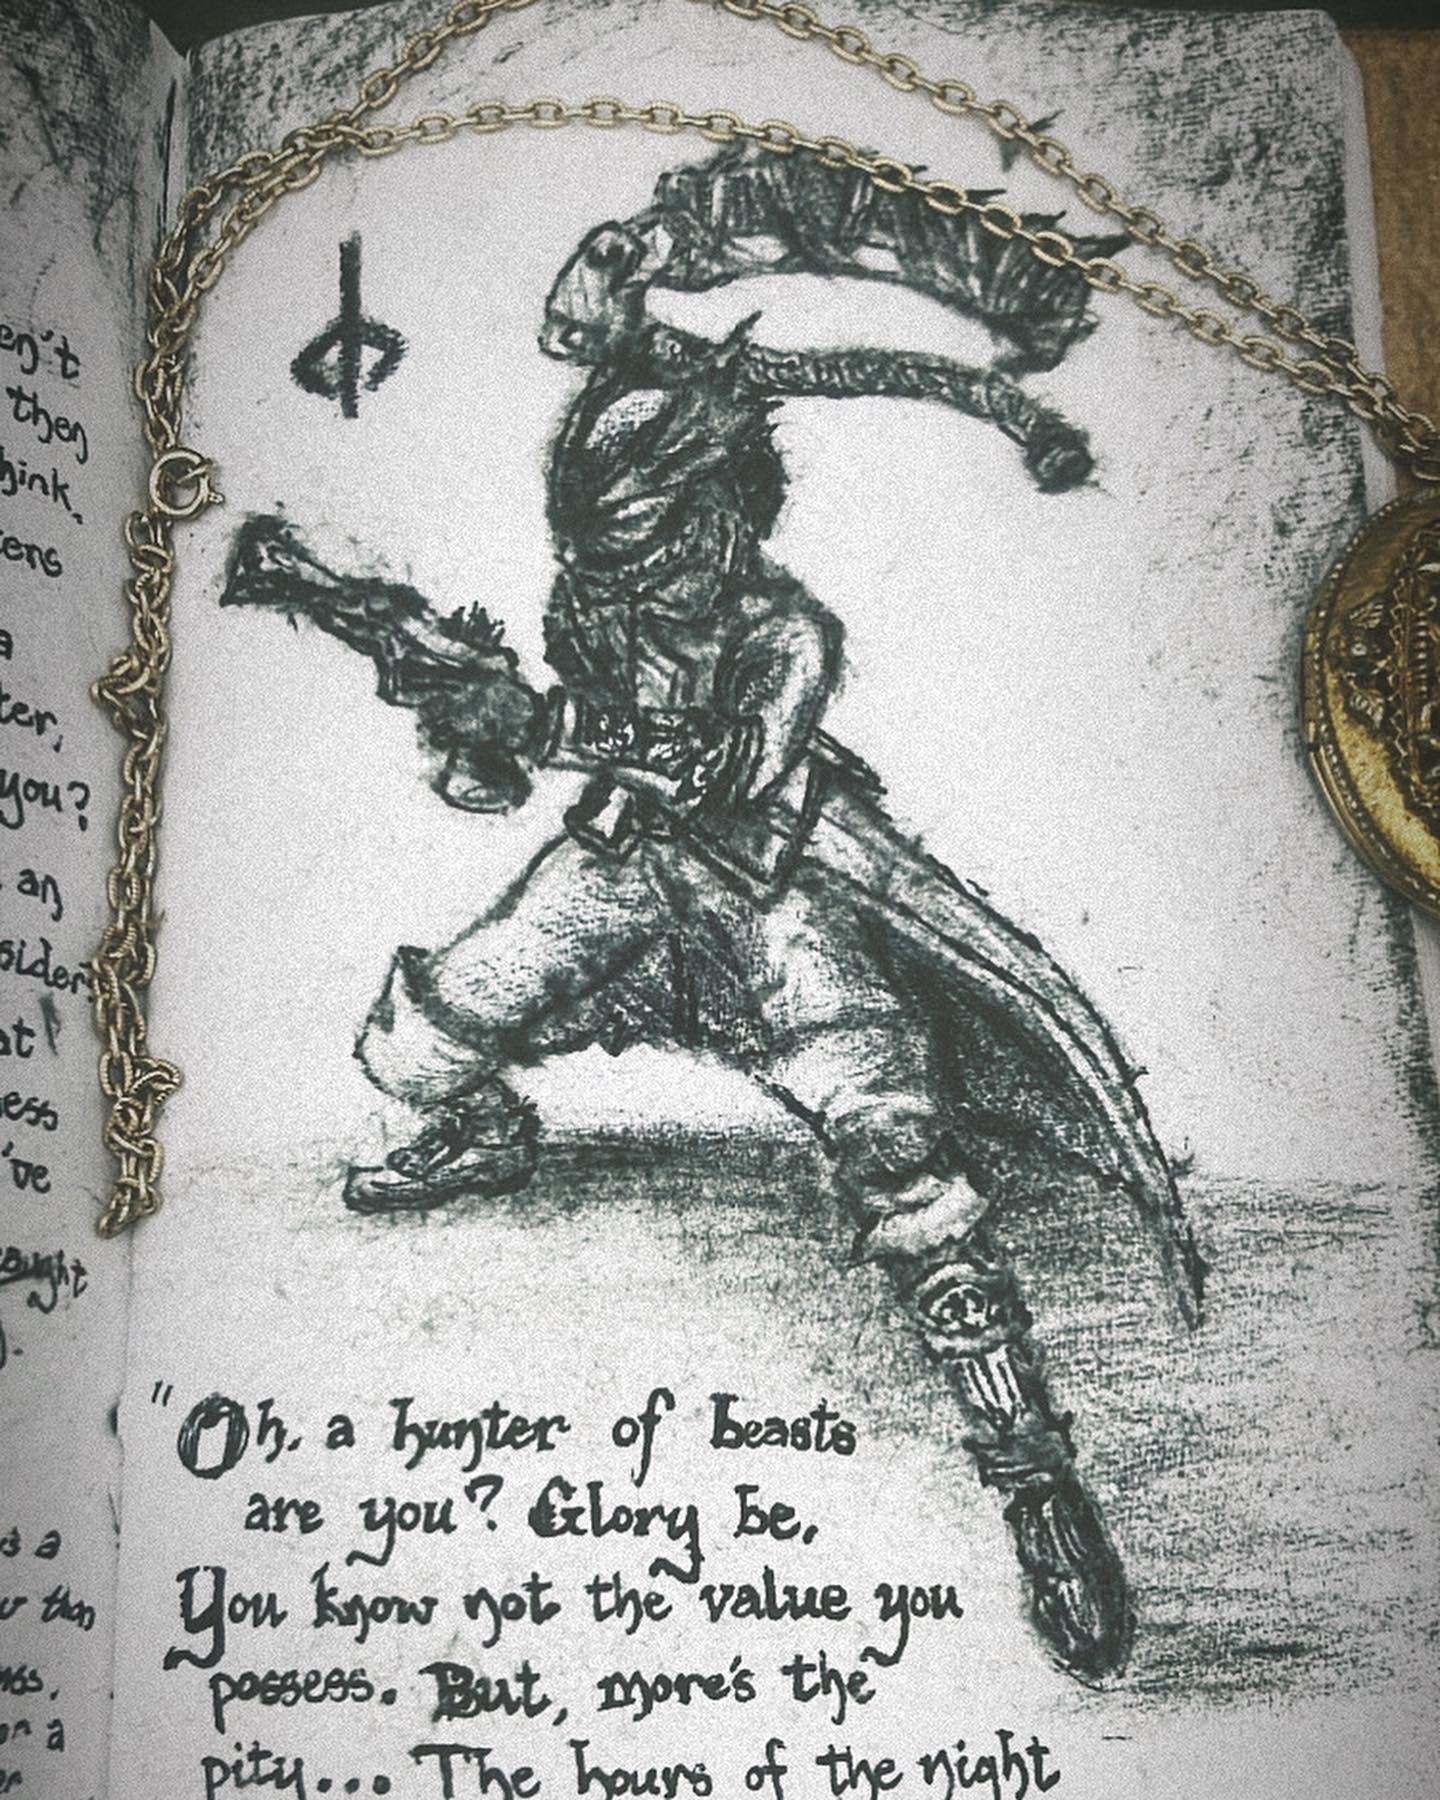 then
hink.
ter,
you?
an
sider
at
ess
've
ought
a
than
a
"Oh, a hunter of beasts
are you? Glory be,
You know not the value you
possess. But, more's the
pity... The hours of the night